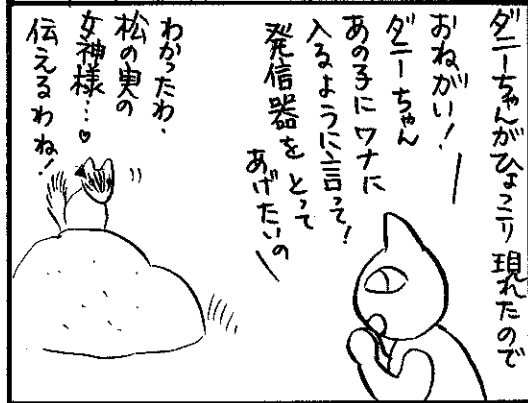 ダニーちゃんがひょっこり現れたので
おねがい!
ダニーちゃん
あの子にワナに
入るように言って!
発信器をとって
あげたいの
わかったわ、
松の実の
女神様…♡
伝えるわね!